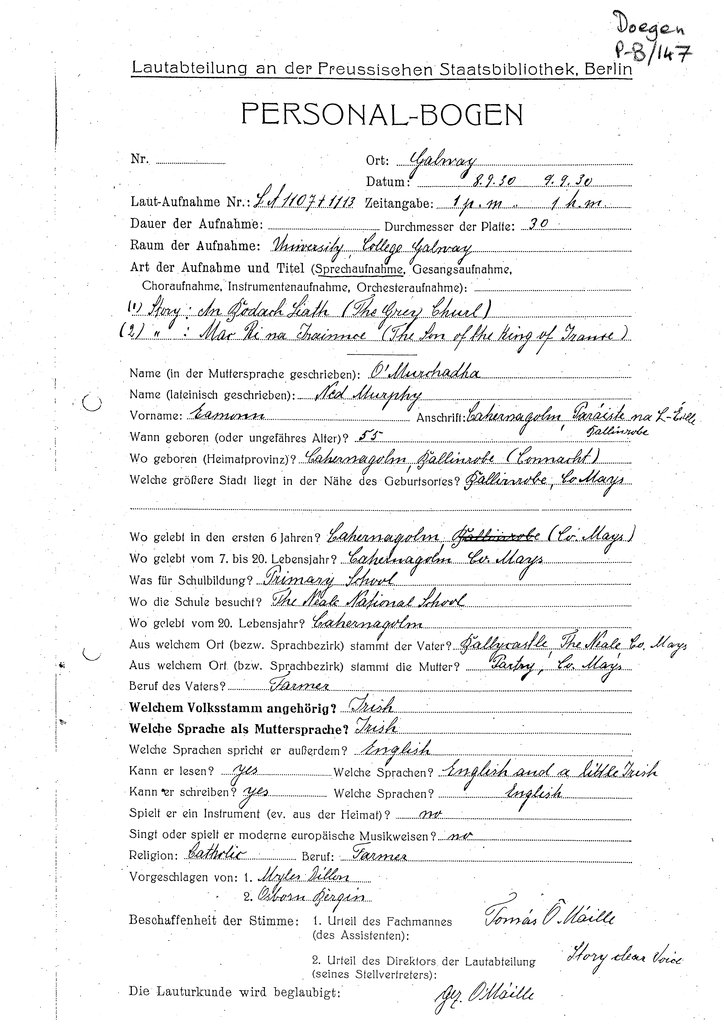 Doegen
P-B/147
Lautabteilung an der Preussischen Staatsbibliothek, Berlin
PERSONAL-BOGEN
Nr. Ort: Galway
Datum: 8.9.30 9.9.30
Laut-Aufnahme Nr.: LA 1107 + 1113 Zeitangabe: 1 p.m. 1 p.m.
Dauer der Aufnahme: Durchmesser der Platte: 30
Raum der Aufnahme: University College Galway
Art der Aufnahme und Titel (Sprechaufnahme, Gesangsaufnahme,
Choraufnahme, Instrumentenaufnahme, Orchesteraufnahme):
(1) Story: An Bodach Liath (The Grey Churl)
(2) " : Mac Ri na Frainnce (The Son of the King of France)
Name (in der Muttersprache geschrieben): O'Murchadha
Name (lateinisch geschrieben): Ned Murphy
Vorname: Eamonn Anschrift: Cahernagolm, Paráiste na
Ballinrobe
Wann geboren (oder ungefähres Alter)? 55
Wo geboren (Heimatprovinz)? Cahernagolm, Ballinrobe (Connacht)
Welche größere Stadt liegt in der Nähe des Geburtsortes? Ballinrobe, Co Mayo
Wo gelebt in den ersten 6 Jahren? Cahernagolm Ballinrobe (Co. Mayo)
Wo gelebt vom 7. bis 20. Lebensjahr? Cahernagolm Co. Mayo
Was für Schulbildung? Primary School
Wo die Schule besucht? The Neale National School
Wo gelebt vom 20. Lebensjahr? Cahernagolm
Aus welchem Ort (bezw. Sprachbezirk) stammt der Vater? Ballycastle, The Neale, Co. Mayo
Aus welchem Ort (bzw. Sprachbezirk) stammt die Mutter? Partry, Co. Mayo
Beruf des Vaters? Farmer
Welchem Volksstamm angehörig? Irish
Welche Sprache als Muttersprache? Irish
Welche Sprachen spricht er außerdem? English
Kann er lesen? yes Welche Sprachen? English and a little Irish
Kann er schreiben? yes Welche Sprachen? English
Spielt er ein Instrument (ev. aus der Heimat)? no
Singt oder spielt er moderne europäische Musikweisen? no
Religion: Catholic Beruf: Farmer
Vorgeschlagen von: 1. Myles Dillon
2. Osborn Bergin
Beschaffenheit der Stimme: 1. Urteil des Fachmannes Tomás Ó Máille
(des Assistenten):
2. Urteil des Direktors der Lautabteilung Story clear Voice
(seines Stellvertreters):
Die Lauturkunde wird beglaubigt: gez. O'Máille